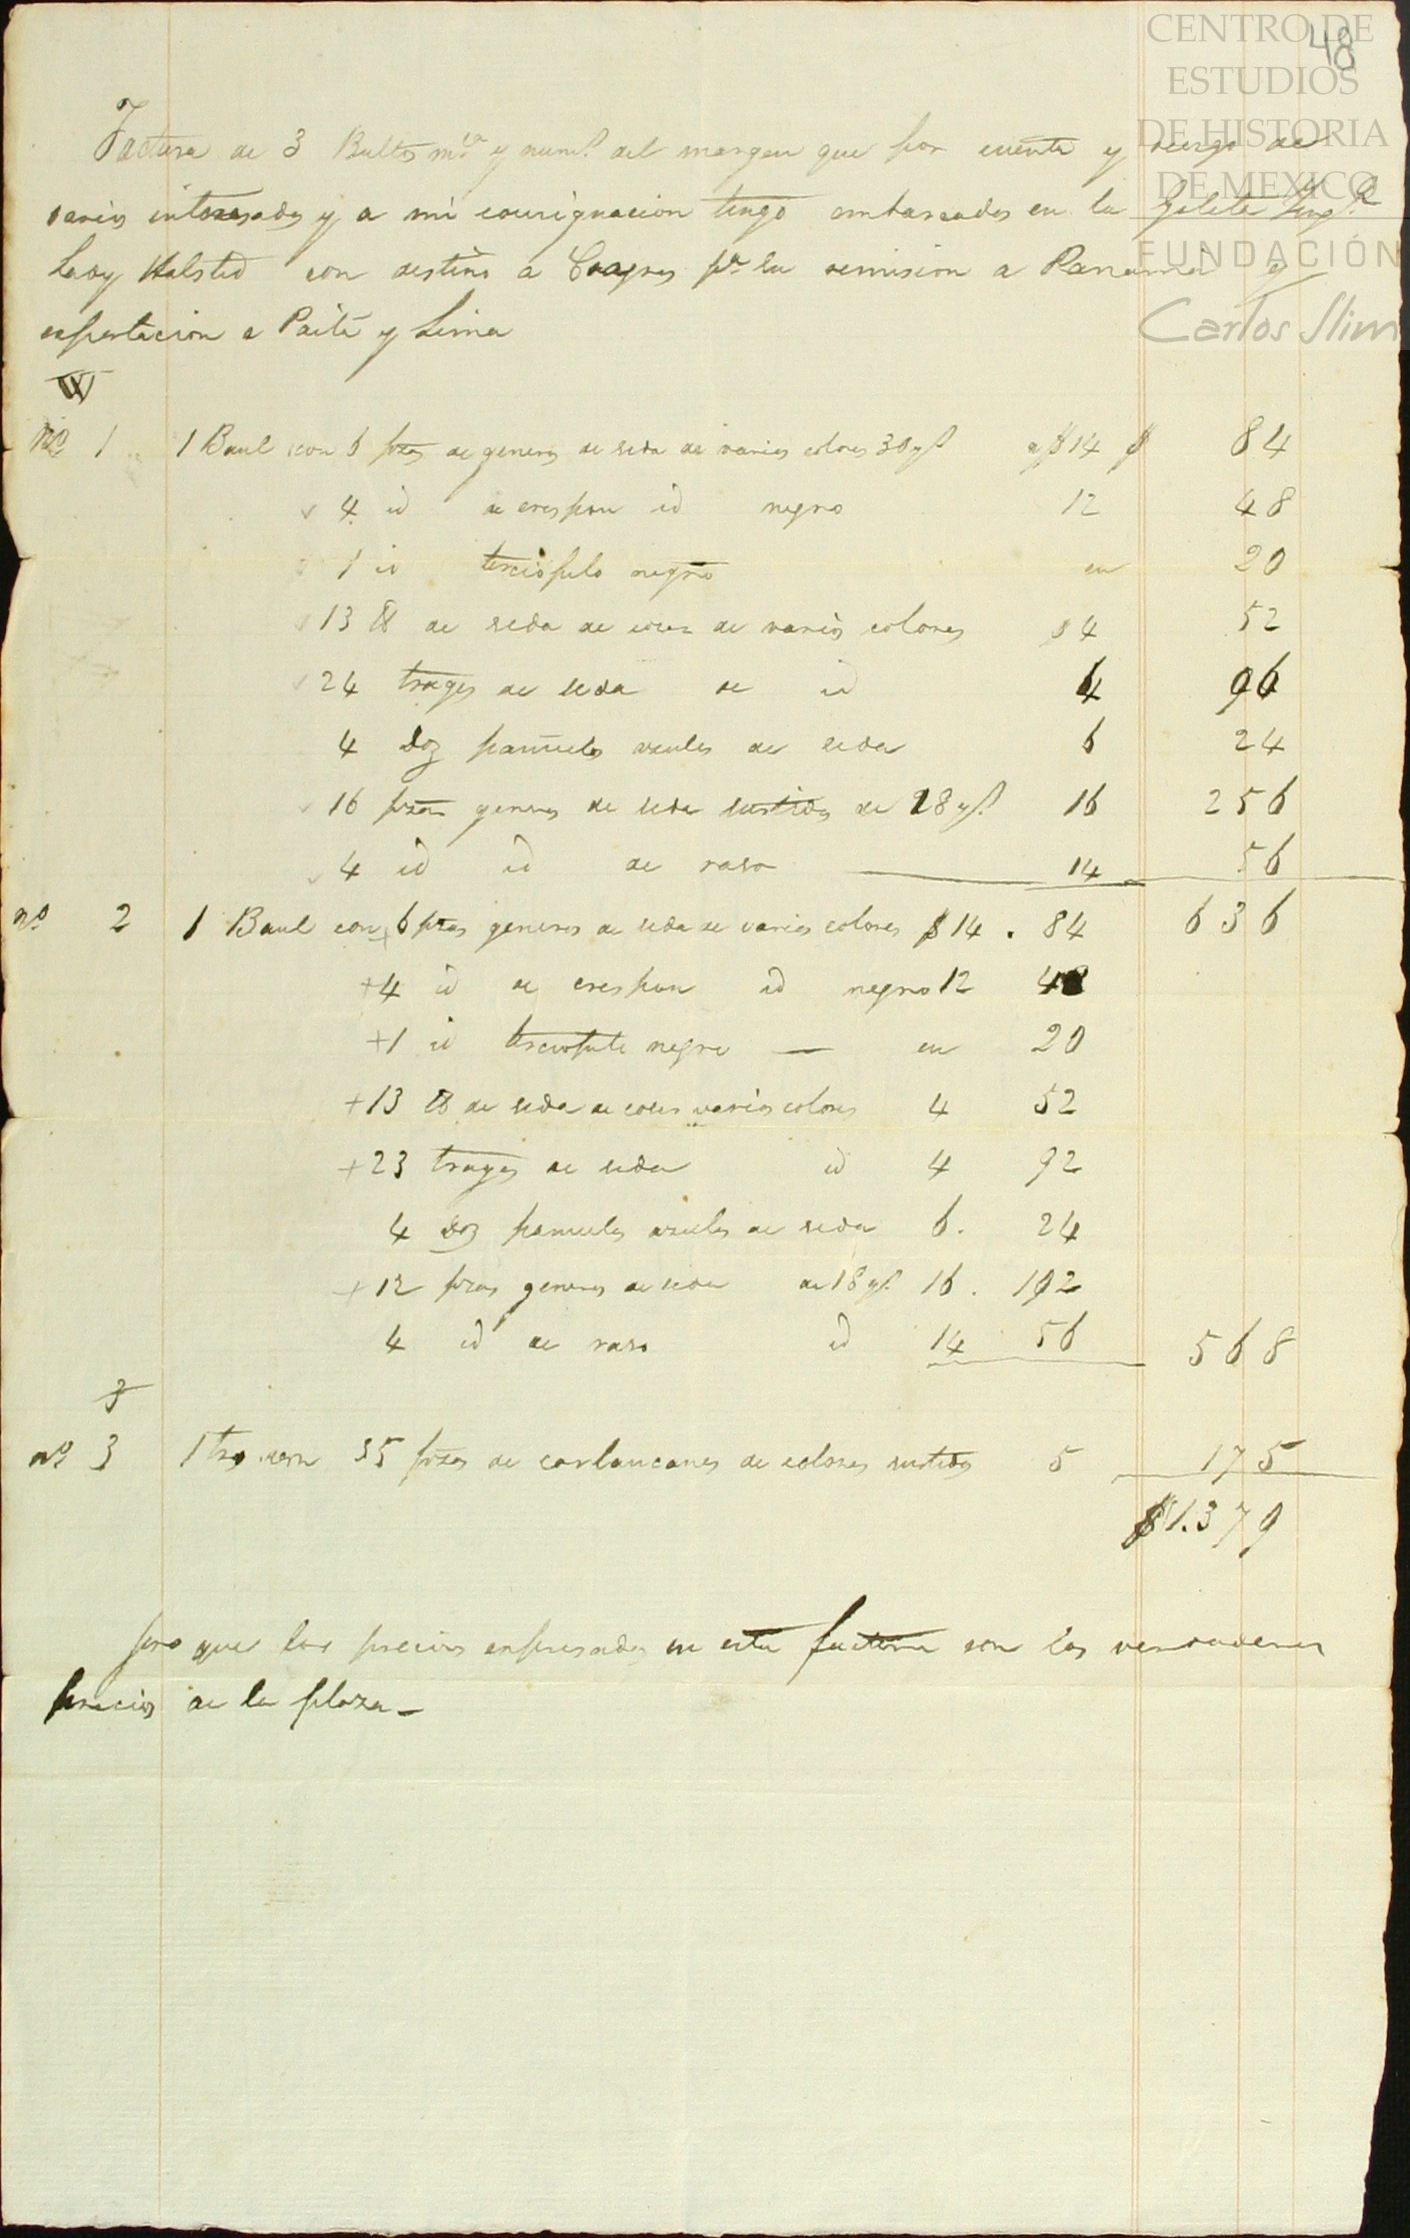 CENTRO DE
ESTUDIOS
DE HISTORIA
DE MEXICO
FUNDACIÓN
Carlos Slim
48
Factura de 3 Bultos mca y nums. del margen que por cuenta y riesgo de
varios interesados y a mi consignacion tengo embarcados en la Goleta Ings.
Lady Halsted con destino a Chagres pa. su remision a Panama y
espertacion a Paita y Lima
W
No 1 1 Baul con 6 pzas de generos de seda de varios colores 30 ys a $14 $ 84
4 id de crespon id negro 12 48
1 id terciopelo negro en 20
13 lb de seda de coser de varios colores $4 52
24 trages de seda de id 4 96
4 Doz pañuelos azules de seda 6 24
16 pzas generos de seda surtidos de 18 ys. 16 256
4 id id de raso 14 56
no 2 1 Baul con 6 pzas generos de seda de varios colores $14. 84 636
+4 id de crespon id negro 12 48
+1 id terciopelo negro — en 20
+13 lb de seda de coser varios colores 4 52
+23 trages de seda id 4 92
4 Doz pañuelos azules de seda 6. 24
+12 pzas generos de seda de 18 ys. 16. 192
4 id de raso id 14 56 568
3
no 3 1 con 35 pzas de carlancanes de colores surtidos 5 175
$1.379
juro que los precios espresados en esta factura son los verdaderos
precios de la plaza_